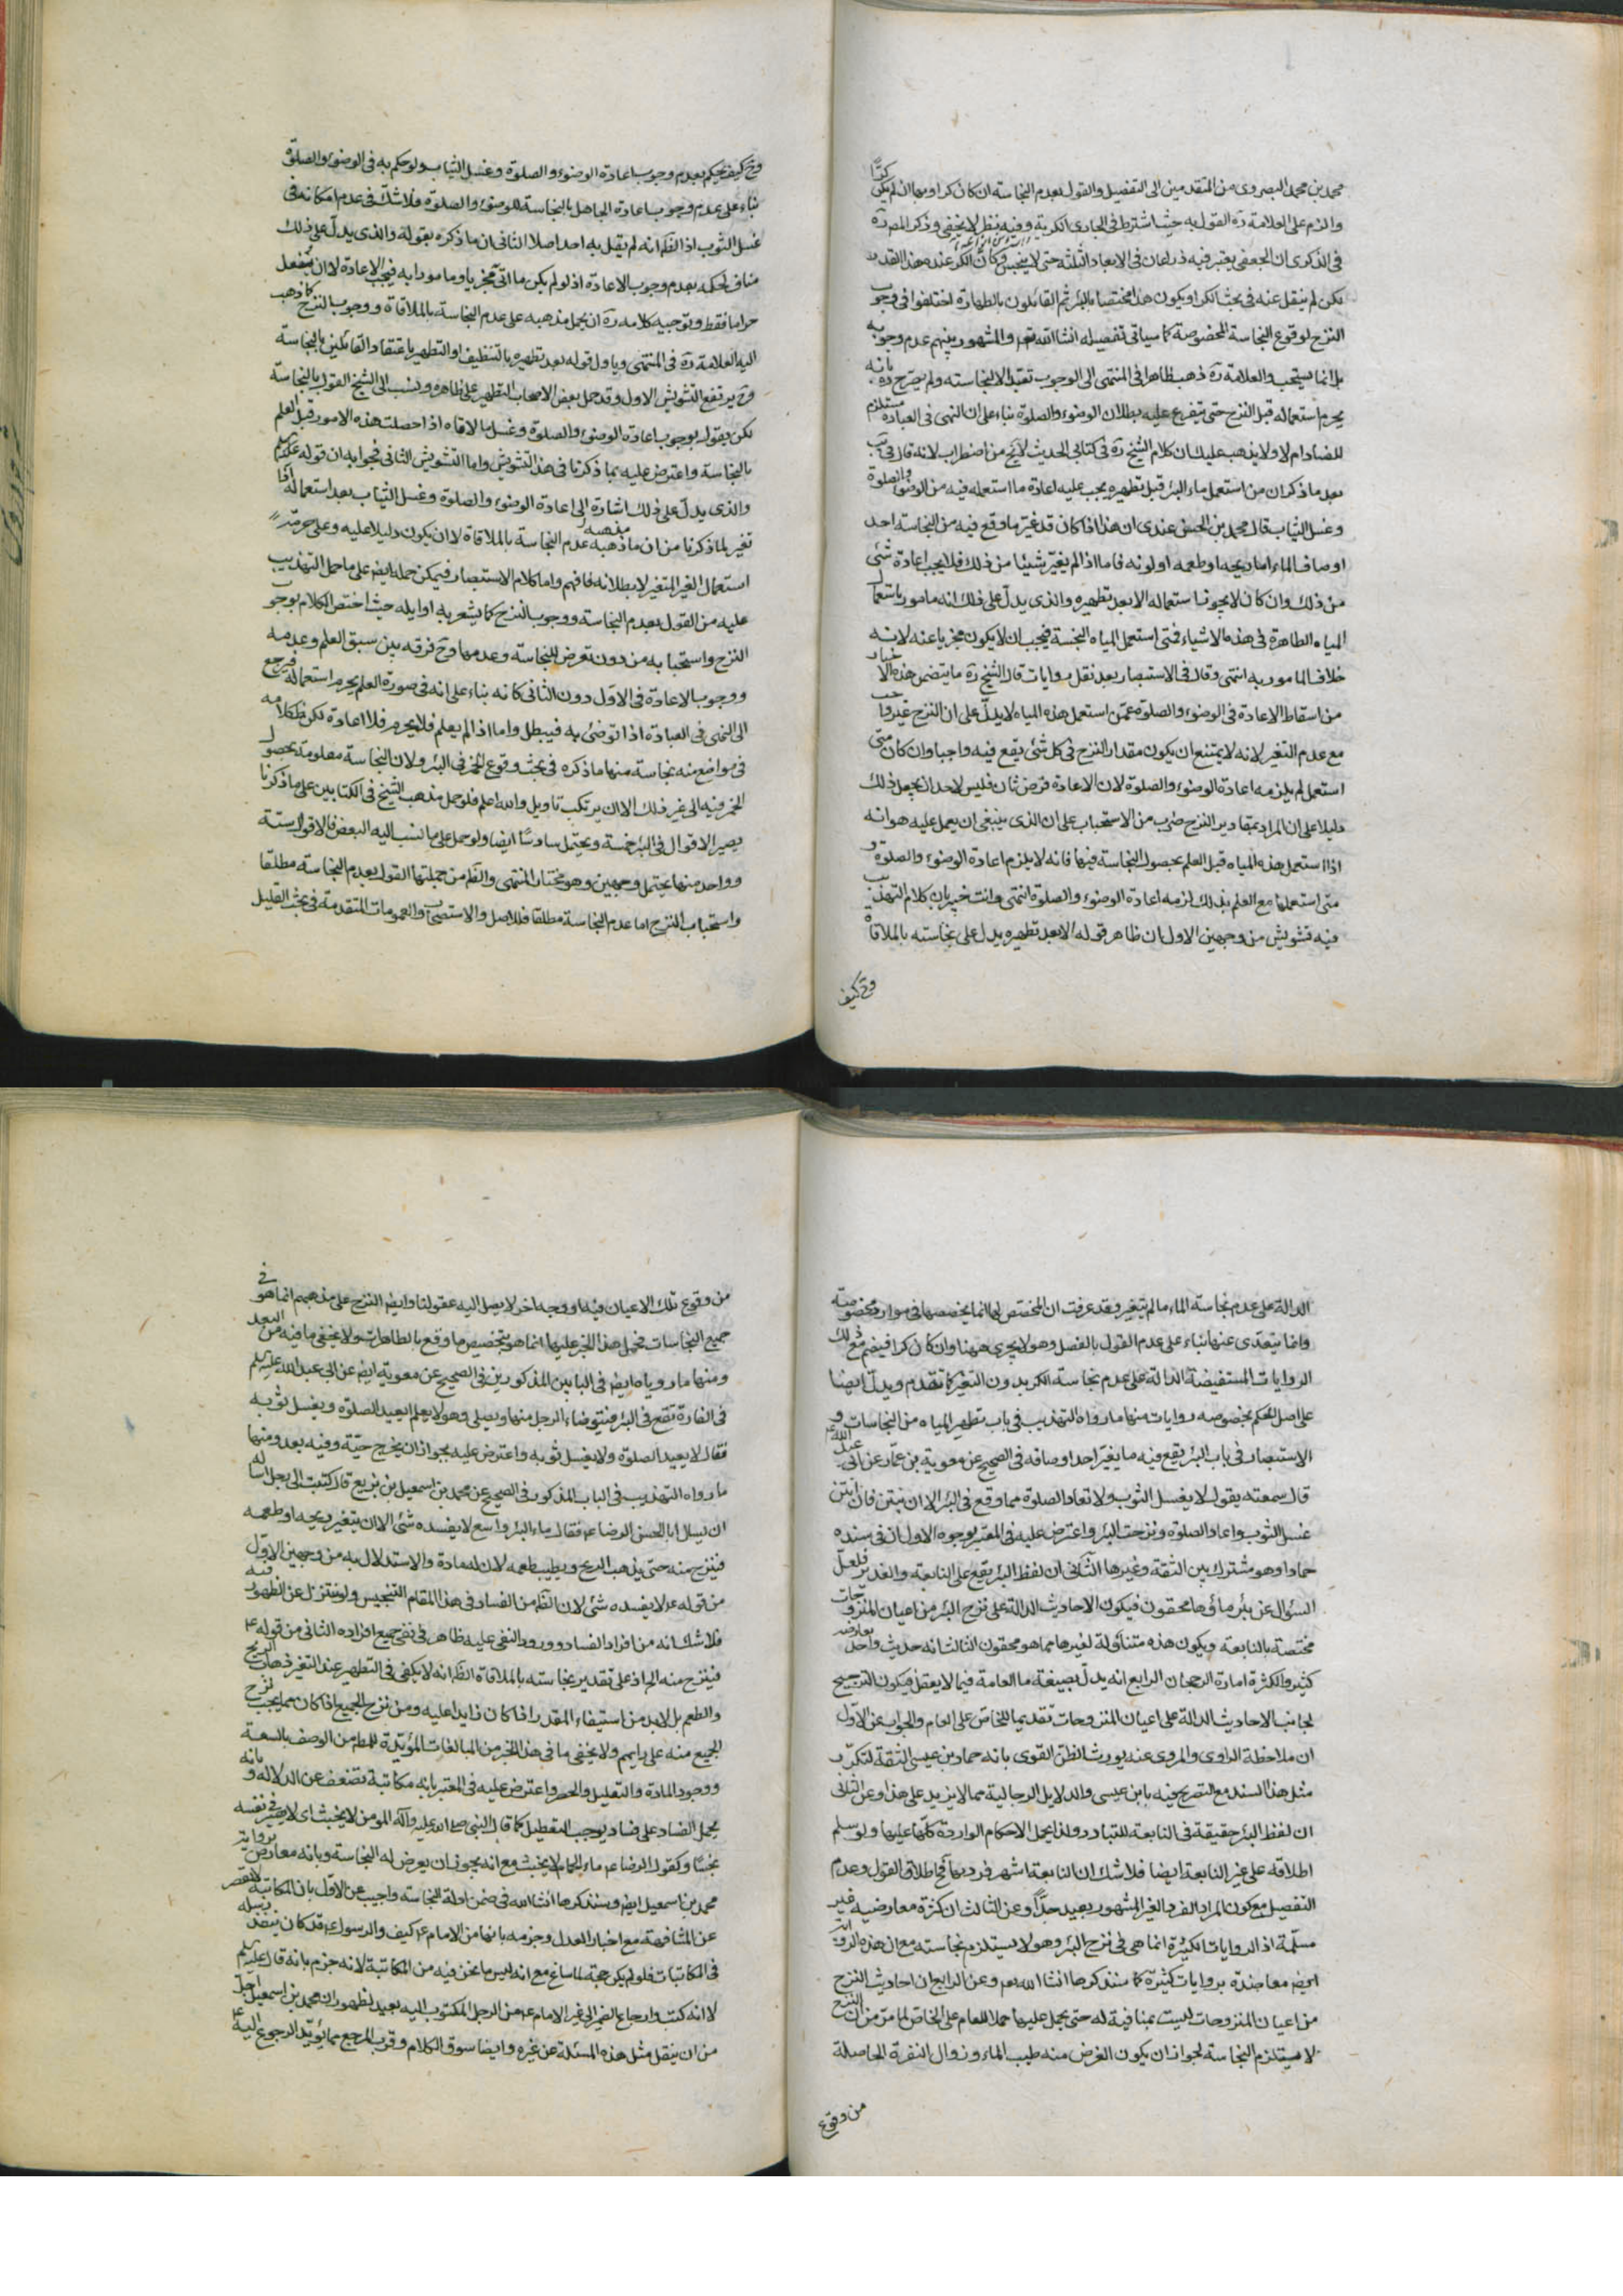 محمد بن محمد البصروى من المتقدمين الى التفصيل والقول بعدم النجاسة ان كان كرا وبها ان لم يكن كرًا
والزم على العلامة ره القول به حيث اشترط فى الجارى الكرية وفيه نظر لا يخفى وذكر المص ره
فى الذكرى ان الجعفى يعتبر فيه ذراعان فى الابعاد الثلثة حتى لا ينجس وكأن الكر عنده هذا القدر
لكن لم ينقل عنه فى بحث الكر او يكون هذا مختصا بالبئر ثم القائلون بالطهارة اختلفوا فى وجوب
النزح لوقوع النجاسة المخصوصة كما سياتى تفصيله انشا الله تعه والمشهور بينهم عدم وجوبه
بل انما يستحب والعلامة ره ذهب ظاهرا فى المنتهى الى الوجوب تعبدا لا لنجاسته ولم يصرح ره بانه
يحرم استعماله قبل النزح حتى يتفرع عليه بطلان الوضوء والصلوة بناء على ان النهى فى العبادة مستلزم
للفساد ام لا ولا يذهب عليك ان كلام الشيخ ره فى كتابى الحديث لا يخ من اضطراب لانه قال فى يب
بعد ما ذكر ان من استعمل ماء البئر قبل تطهيره يجب عليه اعادة ما استعمله فيه من الوضوء والصلوة
وغسل الثياب قال محمد بن الحسن عندى ان هذا اذا كان قد غير ما وقع فيه من النجاسة احد
اوصاف الماء اما ريحه او طعمه او لونه فاما اذا لم يغير شيئا من ذلك فلا يجب اعادة شئ
من ذلك وان كان لا يجوز استعماله الا بعد تطهيره والذى يدل على ذلك انه مامور باستعمال
المياه الطاهرة فى هذه الاشياء فمتى استعمل المياه النجسة فيجب ان لا يكون مجزيا عنه لانه
خلاف المامور به انتهى وقال فى الاستبصار بعد نقل روايات قال الشيخ ره ما يتضمن هذه الاخبار
من اسقاط الاعادة فى الوضوء والصلوة عمن استعمل هذه المياه لا يدل على ان النزح غير واجب
مع عدم التغير لانه لا يمتنع ان يكون مقدار النزح فى كل شئ يقع فيه واجبا وان كان متى
استعمل لم يلزمه اعادة الوضوء والصلوة لان الاعادة فرض ثان فليس لاحد ان يجعل ذلك
دليلا على ان المراد بمقادير النزح ضرب من الاستحباب على ان الذى ينبغى ان يعمل عليه هو انه
اذا استعمل هذه المياه قبل العلم بحصول النجاسة فيها فانه لا يلزم اعادة الوضوء والصلوة و
متى استعملها مع العلم بذلك لزمه اعادة الوضوء والصلوة انتهى وانت خبير بان كلام التهذيب
فيه تشويش من وجهين الاول ان ظاهر قوله الا بعد تطهيره يدل على نجاسته بالملاقاة
وح كيف
وح كيف يحكم بعدم وجوب اعادة الوضوء والصلوة وغسل الثياب ولو حكم به فى الوضوء والصلوة
بناء على عدم وجوب اعادة الجاهل بالنجاسة للوضوء والصلوة فلا شك فى عدم امكانه فى
غسل الثوب اذ الظ انه لم يقل به احد اصلا الثانى ان ما ذكره بقوله والذى يدل على ذلك
مناف لحكمه بعدم وجوب الاعادة اذ لو لم يكن ما اتى مجزيا ومامورا به فيجب الاعادة لا ان يفعل
حراما فقط وتوجيه كلامه ره ان يحمل مذهبه على عدم النجاسة بالملاقاة ووجوب النزح كما ذهب
اليه العلامة ره فى المنتهى وياول قوله بعد تطهيره بالتنظيف او التطهير باعتقاد القائلين بالنجاسة
وح يرتفع التشويش الاول وقد حمل بعض الاصحاب التطهير على ظاهره ونسب الى الشيخ القول بالنجاسة
لكن بقوله بوجوب اعادة الوضوء والصلوة وغسل ما لاقاه اذا حصلت هذه الامور قبل العلم
بالنجاسة واعترض عليه بما ذكرنا فى هذا التشويش واما التشويش الثانى فجوابه ان قوله
والذى يدل على ذلك اشارة الى اعادة الوضوء والصلوة وغسل الثياب بعد استعماله
تغير لما ذكرنا من ان مذهبه عدم النجاسة بالملاقاة لا ان يكون دليلا عليه وعلى حرمة
استعمال الغير المتغير لا بطلانه فافهم واما كلام الاستبصار فيمكن حمله ايض على ما حمل التهذيب
عليه من القول بعدم النجاسة ووجوب النزح كما يشعر به اوايله حيث اختص الكلام بوجوب
النزح واستحبابه من دون تعرض للنجاسة وعدمها وح فرقه بين سبق العلم وعدمه
ووجوب الاعادة فى الاول دون الثانى كانه بناء على انه فى صورة العلم يحرم استعماله فيرجع
الى النهى فى العبادة اذا توضئ به فيبطل واما اذا لم يعلم فلا يحرم فلا اعادة لكن ظ كلامه
فى مواضع منه نجاسة منها ما ذكره فى بحث وقوع الخمر فى البئر ولان النجاسة معلومة بحصول
الخمر فيه الى غير ذلك الا ان يرتكب تاويل والله اعلم فلو حمل مذهب الشيخ فى الكتابين على ما ذكرنا
يصير الاقوال فى البئر خمسة ويحتمل سادسًا ايضا ولو حمل على ما نسب اليه البعض فالاقوال ستة
وواحد منها يحتمل وجهين وهو مختار المنتهى والظ من جملتها القول بعدم النجاسة مطلقا
واستحباب النزح اما عدم النجاسة مطلقا فللاصل والاستصحاب والعمومات المتقدمة فى بحث القليل
الدالة على عدم نجاسة الماء ما لم يتغير وقد عرفت ان المختص لها انما يخصصها فى موارد مخصوصة
وانما يتعدى عنها بناء على عدم القول بالفصل وهو لا يجرى ههنا وان كان كرا فينضم مع ذلك
الروايات المستفيضة الدالة على عدم نجاسة الكر بدون التغير كما تقدم ويدل ايضا
على اصل الحكم بخصوصه روايات منها ما رواه التهذيب فى باب تطهير المياه من النجاسات و
الاستبصار فى باب البئر يقع فيه ما يغير احد اوصافه فى الصحيح عن معوية بن عمار عن ابى عبد الله
قال سمعته يقول لا يغسل الثوب ولا تعاد الصلوة مما وقع فى البئر الا ان ينتن فان انتن
غسل الثوب واعاد الصلوة ونزحت البئر واعترض عليه فى المعتبر بوجوه الاول ان فى سنده
حمادا وهو مشترك بين الثقة وغيرها الثانى ان لفظ البئر يقع على النابعة والغدير فلعل
السؤال عن بئر ماؤها محقون فيكون الاحاديث الدالة على نزح البئر من اعيان المنزوحات
مختصة بالنابعة ويكون هذه متناولة لغيرها مما هو محقون الثالث انه حديث واحد يعارضه
كثير والكثرة امارة الرجحان الرابع انه يدل بصيغة ما العامة فيما لا يعقل فيكون الترجيح
لجانب الاحاديث الدالة على اعيان المنزوحات تقديما للخاص على العام والجواب عن الاول
ان ملاحظة الراوى والمروى عنه يورث الظن القوى بانه حماد بن عيسى الثقة لتكرر
مثل هذا السند مع التصريح فيه بابن عيسى والدلايل الرجالية مما لا يزيد على هذا وعن الثانى
ان لفظ البئر حقيقة فى النابعة للتبادر ولذا يحمل الاحكام الواردة كلها عليها ولو سلم
اطلاقه على غير النابعة ايضا فلا شك ان النابعة اشهر فرديها فح اطلاق القول وعدم
التفصيل مع كون المراد الفرد الغير المشهور بعيد جدًا وعن الثالث ان كثرة معارضيه غير
مسلمة اذ الروايات الكثيرة انما هى فى نزح البئر وهو لا يستلزم نجاسته مع ان هذه الرواية
ايض معاضدة بروايات كثيرة كما سنذكرها انشا الله تعه وعن الرابع ان احاديث النزح
من اعيان المنزوحات ليست بمنافية له حتى يحمل عليها حملا للعام على الخاص لما مر من ان النزح
لا يستلزم النجاسة لجواز ان يكون الغرض منه طيب الماء وزوال النفرة الحاصلة
من وقوع
من وقوع تلك الاعيان فيه او وجه اخر لا يصل اليه عقولنا وايض النزح على مذهبهم انما هو فى
جميع النجاسات فحمل هذا الخبر عليها انما هو بتخصيص ما وقع بالطاهرات ولا يخفى ما فيه من البعد
ومنها ما روياه ايض فى البابين المذكورين فى الصحيح عن معوية ايض عن ابى عبد الله عليه السلم
فى الفارة تقع فى البئر فيتوضاء الرجل منها ويصلى وهو لا يعلم ايعيد الصلوة ويغسل ثوبه
فقال لا يعيد الصلوة ولا يغسل ثوبه واعترض عليه بجواز ان يخرج حية وفيه بعد ومنها
ما رواه التهذيب فى الباب المذكور فى الصحيح عن محمد بن اسمعيل بن بزيع قال كتبت الى رجل اساله
ان يسال ابا الحسن الرضا ع فقال ماء البئر واسع لا يفسده شئ الا ان يتغير ريحه او طعمه
فينزح منه حتى يذهب الريح ويطيب طعمه لان له مادة والاستدلال به من وجهين الاول
من قوله ع لا يفسده شئ لان الظ من الفساد فى هذا المقام التنجيس ولو نتنزل عن الظهور فيه
فلا شك انه من افراد الفساد وورود النفى عليه ظاهر فى نفى جميع افراده الثانى من قوله ع
فينزح منه الخ اذ على تقدير نجاسته بالملاقاة الظ انه لا يكفى فى التطهير عند التغير ذهاب الريح
والطعم بل لا بد من استيفاء المقدر اذا كان زايدا عليه ومن نزح الجميع اذا كان مما يجب نزح
الجميع منه على رايهم ولا يخفى ما فى هذا الخبر من المبالغات المؤيدة للمط من الوصف بالسعة
ووجود المادة والتعليل والحصر واعترض عليه فى المعتبر بانه مكاتبة تضعف عن الدلالة وبانه
يحمل الفساد على فساد يوجب التعطيل كما قال النبى صلى الله عليه وآله المومن لا يخبث اى لا يصير فى نفسه
نجسًا وكقول الرضا ع ماء الحمام لا يخبث مع انه يجوز ان يعرض له النجاسة وبانه معارض برواية
محمد بن اسمعيل ايض وسنذكرها انشا الله فى ضمن ادلة النجاسة واجيب عن الاول بان المكاتبة لا تقصر
عن المشافهة مع اخبار العدل وجزمه بانها من الامام ع كيف والرسول ع قد كان ينفذ رسله
فى المكاتبات فلو لم يكن حجة لما ساغ مع انه ليس ما نحن فيه من المكاتبة لانه جزم بانه قال عليه السلم
لا انه كتب وارجاع الضمير الى غير الامام ع من الرجل المكتوب اليه بعيد لظهور ان محمد بن اسمعيل اجل
من ان ينقل مثل هذه المسئلة عن غيره وايضا سوق الكلام وقرب المرجع مما يؤيد الرجوع اليه ع